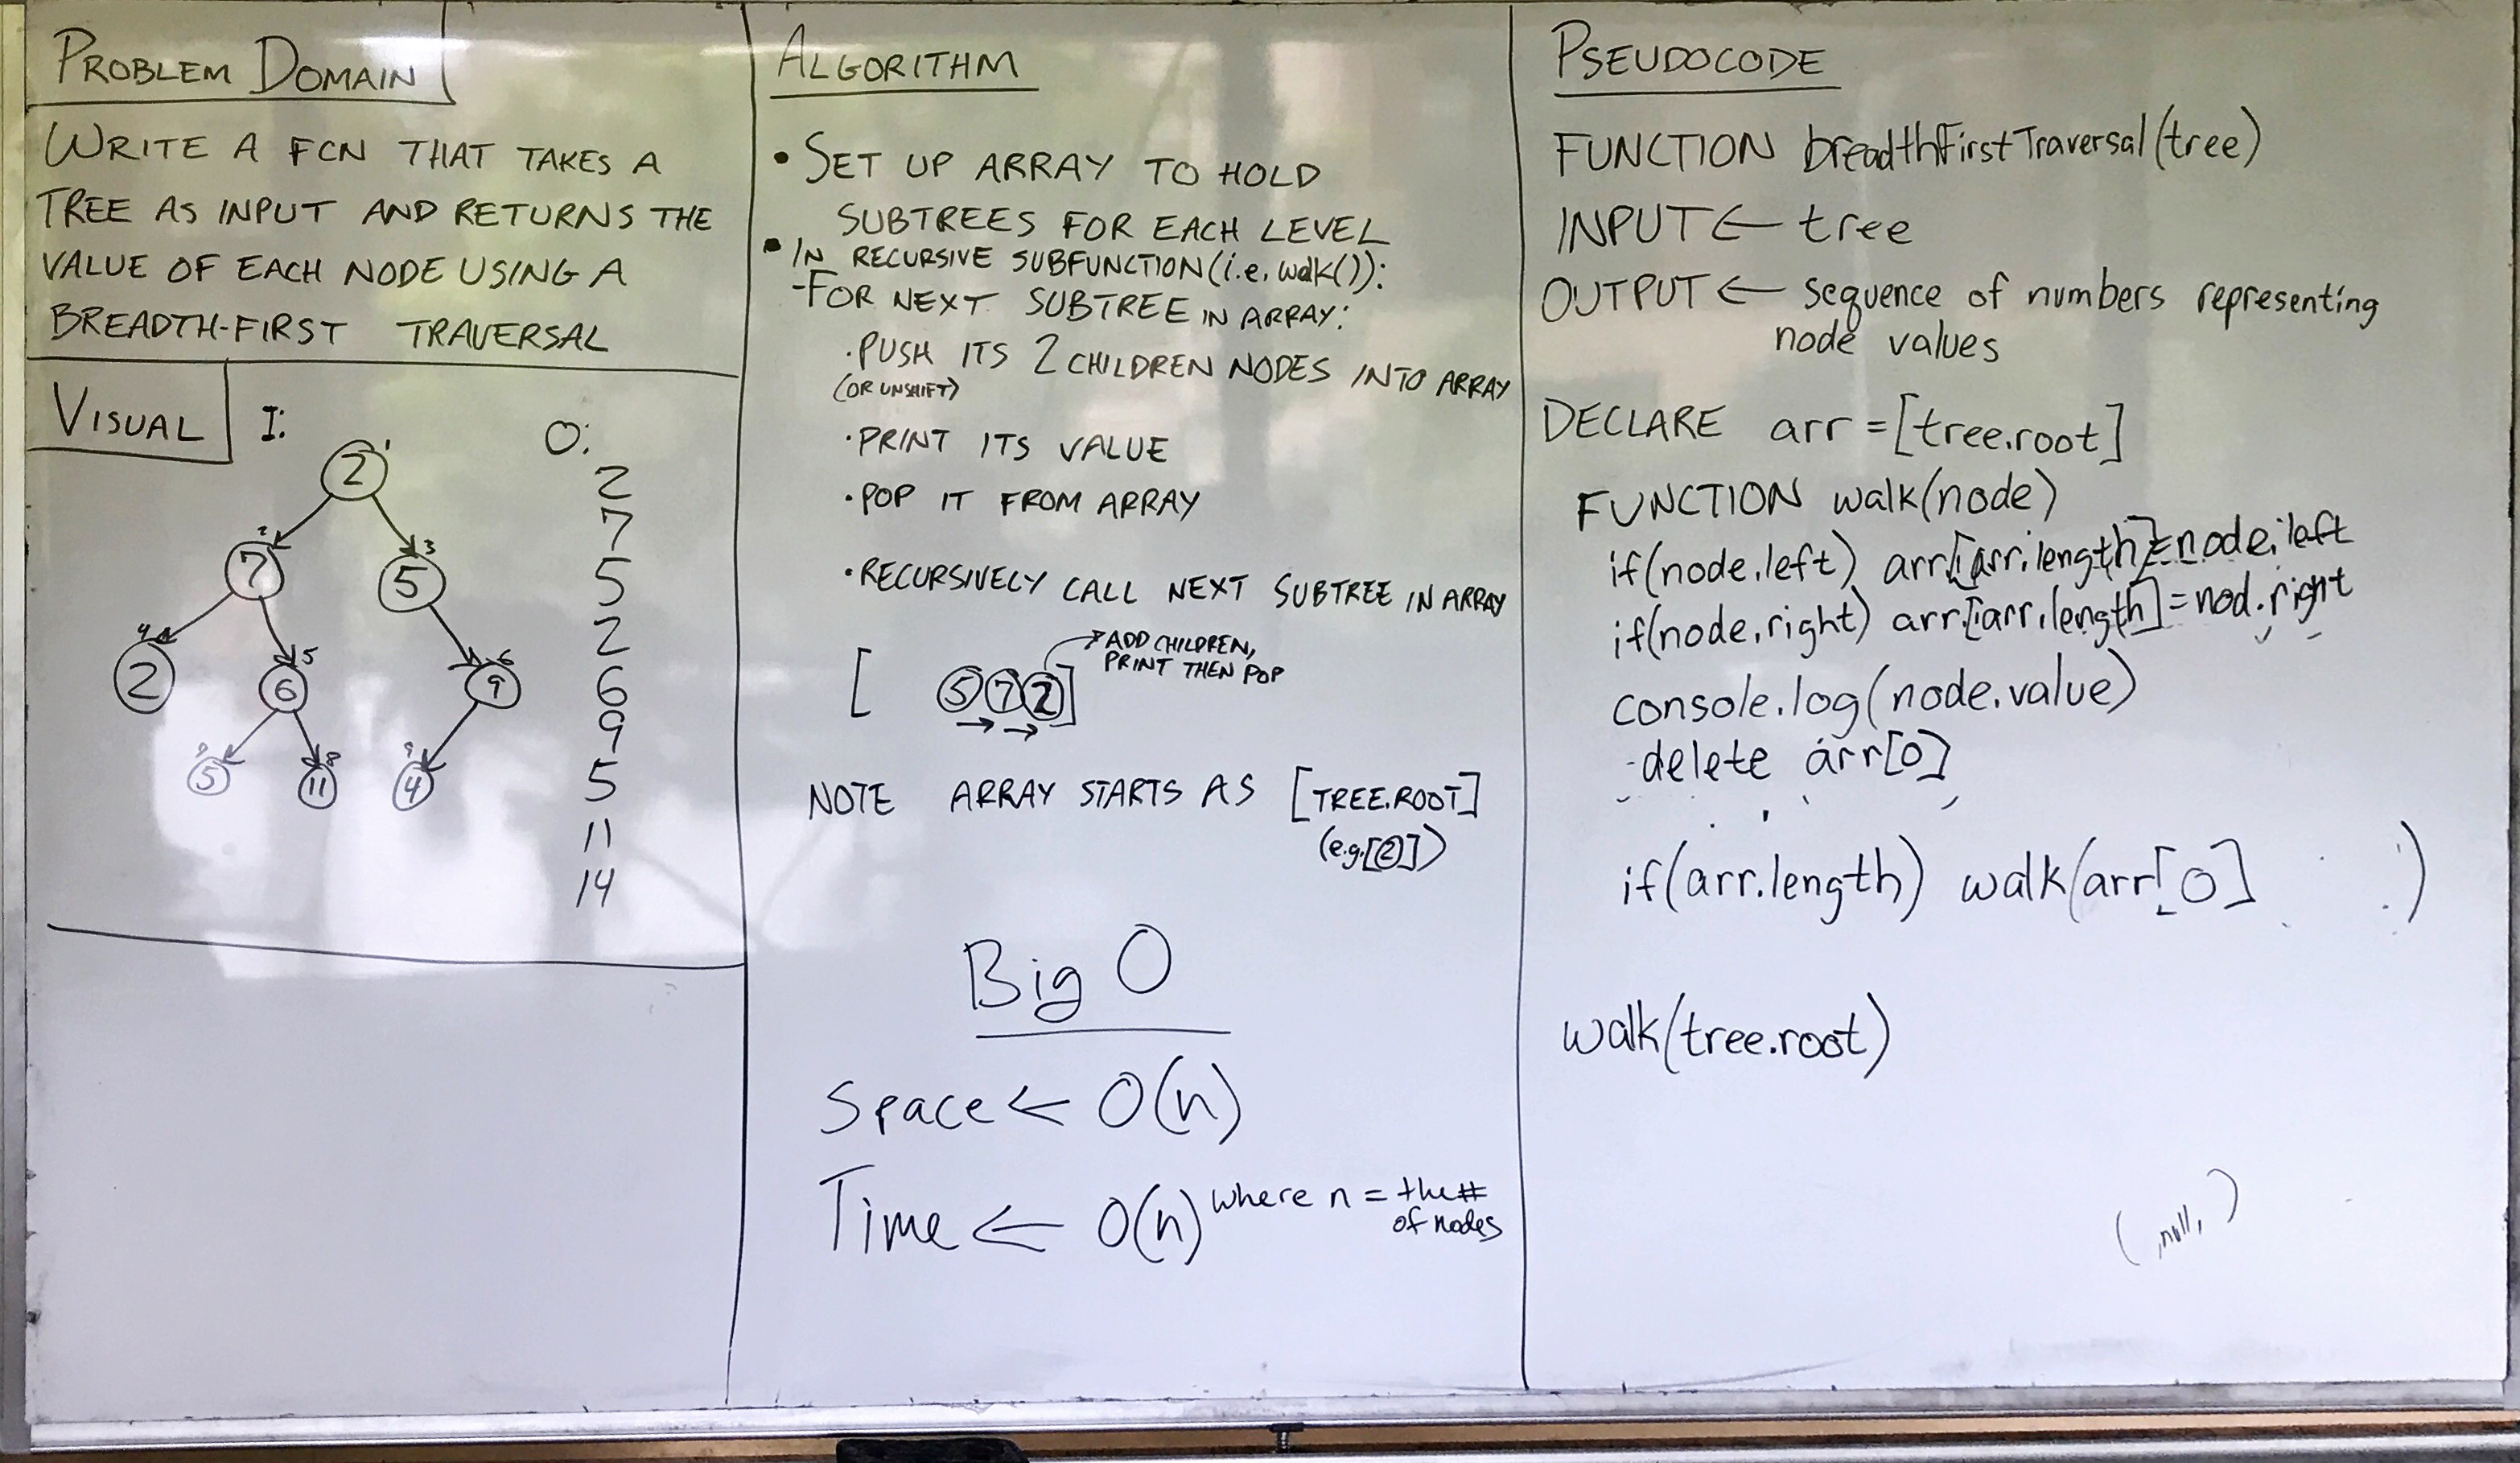 PROBLEM DOMAIN
WRITE A FCN THAT TAKES A
TREE AS INPUT AND RETURNS THE
VALUE OF EACH NODE USING A
BREADTH-FIRST TRAVERSAL
VISUAL
I:
O:
2 1
7 2
5 3
2 4
6 5
9 6
5
11 8
4 9
2
7
5
2
6
9
5
11
14
ALGORITHM
• SET UP ARRAY TO HOLD
SUBTREES FOR EACH LEVEL
• IN RECURSIVE SUBFUNCTION (i.e. walk()):
-FOR NEXT SUBTREE IN ARRAY:
·PUSH ITS 2 CHILDREN NODES INTO ARRAY
(OR UNSHIFT)
·PRINT ITS VALUE
·POP IT FROM ARRAY
·RECURSIVELY CALL NEXT SUBTREE IN ARRAY
→ADD CHILDREN,
PRINT THEN POP
[ 5 7 2 ]
NOTE ARRAY STARTS AS [TREE.ROOT]
(e.g. [2])
Big O
Space ← O(n)
Time ← O(n) where n = the #
of nodes
PSEUDOCODE
FUNCTION breadthFirstTraversal(tree)
INPUT ← tree
OUTPUT ← sequence of numbers representing
node values
DECLARE arr = [tree.root]
FUNCTION walk(node)
if(node.left) arr[arr.length]=node.left
if(node.right) arr[arr.length]=nod.right
console.log(node.value)
delete arr[0]
if(arr.length) walk(arr[0] )
walk(tree.root)
( ,null, )